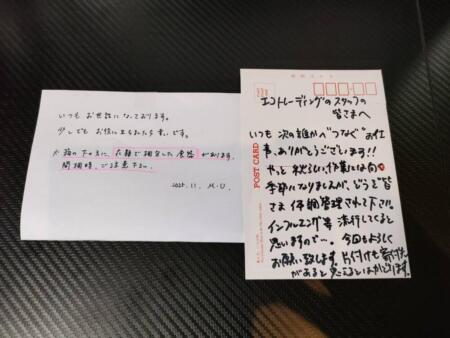 いつもお世話になっております。
少しでもお役に立ちましたら幸いです。
※箱の下の方に、衣類で梱包した食器があります。
開梱時、ご注意下さい。
2025.11. M.U
エコトレーディングのスタッフの
皆さまへ
いつも次の誰かへ"つなぐ"お仕
事、ありがとうございます!!
やっと秋らしい、作業には向く
季節になりましたが、どうぞ皆
さま体調管理されて下さい。
インフルエンザ等流行してくると
思いますので…。今回もよろしく
お願い致します。片付けも寄付た
があると思えるとはかどります。
POST CARD